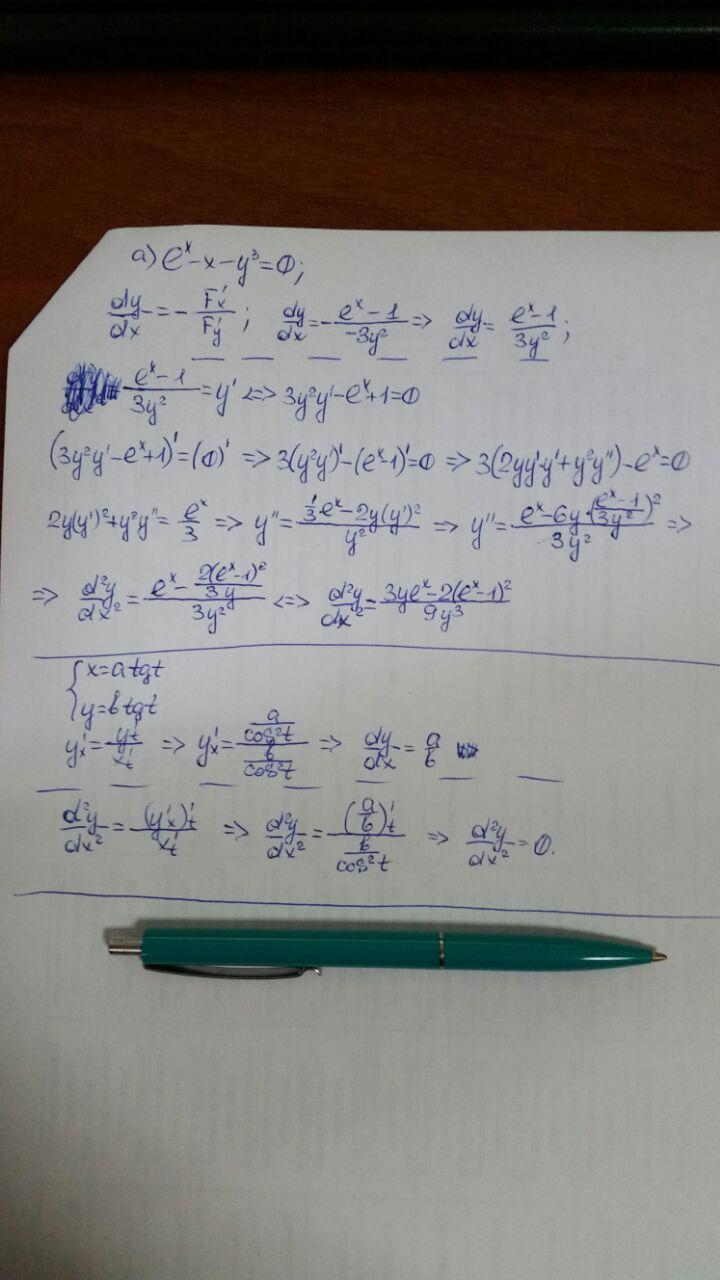 а) eˣ-x-y³=0;
dy/dx = - F'x/F'y ; dy/dx = - (eˣ-1)/(-3y²) => dy/dx = (eˣ-1)/(3y²);
(eˣ-1)/(3y²) = y' <=> 3y²y'-eˣ+1=0
(3y²y'-eˣ+1)'=(0)' => 3(y²y')'-(eˣ-1)'=0 => 3(2yy'·y'+y²y'')-eˣ=0
2y(y')²+y²y''= eˣ/3 => y''= (1/3 eˣ-2y(y')²)/y² => y''= (eˣ-6y·((eˣ-1)/(3y²))²)/(3y²) =>
=> d²y/dx² = (eˣ - 2(eˣ-1)²/(3y))/(3y²) <=> d²y/dx² = (3yeˣ-2(eˣ-1)²)/(9y³)
{ x=a tgt
y=b tgt
y'x = y't/x't => y'x = (a/cos²t)/(b/cos²t) => dy/dx = a/b
d²y/dx² = (y'x)'t/x't => d²y/dx² = (a/b)'t/(b/cos²t) => d²y/dx² = 0.